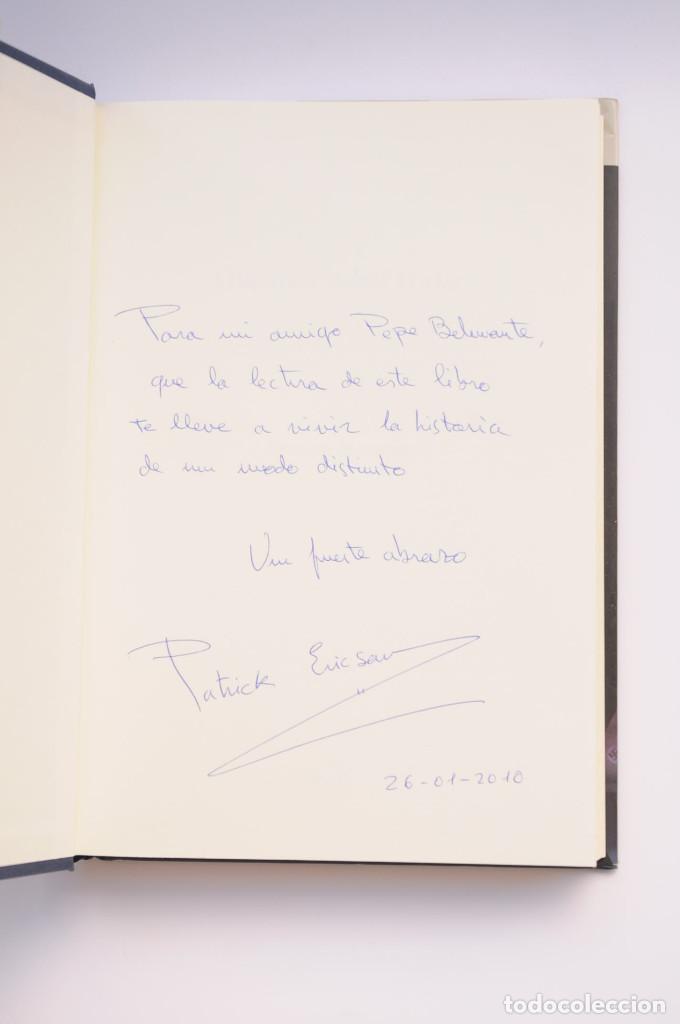 Para mi amigo Pepe Belmonte,
que la lectura de este libro
te lleve a vivir la historia
de un modo distinto
Un fuerte abrazo
Patrick Ericson
26-01-2010
todocoleccion